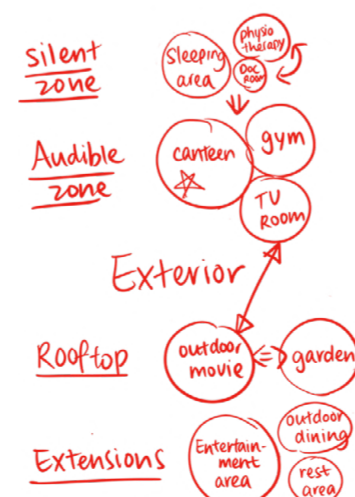 silent
zone
Sleeping
area
physio
therapy
Doc
Room
Audible
zone
canteen
gym
TV
Room
Exterior
Rooftop
outdoor
movie
garden
Extensions
Entertain-
ment
area
outdoor
dining
rest
area